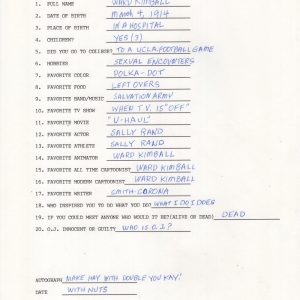 1. FULL NAME WARD KIMBALL
2. DATE OF BIRTH March 4, 1914
3. PLACE OF BIRTH IN A HOSPITAL
4. CHILDREN? YES (3)
5. DID YOU GO TO COLLEGE? TO A UCLA FOOTBALL GAME
6. HOBBIES SEXUAL ENCOUNTERS
7. FAVORITE COLOR POLKA-DOT
8. FAVORITE FOOD LEFTOVERS
9. FAVORITE BAND/MUSIC SALVATION ARMY
10. FAVORITE TV SHOW WHEN T.V. IS "OFF"
11. FAVORITE MOVIE "U-HAUL"
12. FAVORITE ACTOR SALLY RAND
13. FAVORITE ATHLETE SALLY RAND
14. FAVORITE ANIMATOR WARD KIMBALL
15. FAVORITE ALL TIME CARTOONIST WARD KIMBALL
16. FAVORITE MODERN CARTOONIST WARD KIMBALL
17. FAVORITE WRITER SMITH-CORONA
18. WHO INSPIRED YOU TO DO WHAT YOU DO? WHAT I DO I DOES
19. IF YOU COULD MEET ANYONE WHO WOULD IT BE? (ALIVE OR DEAD) DEAD
20. O.J. INNOCENT OR GUILTY WHO IS O.J.?
AUTOGRAPH MAKE HAY WITH DOUBLE YOU KAY!
DATE WITH NUTS